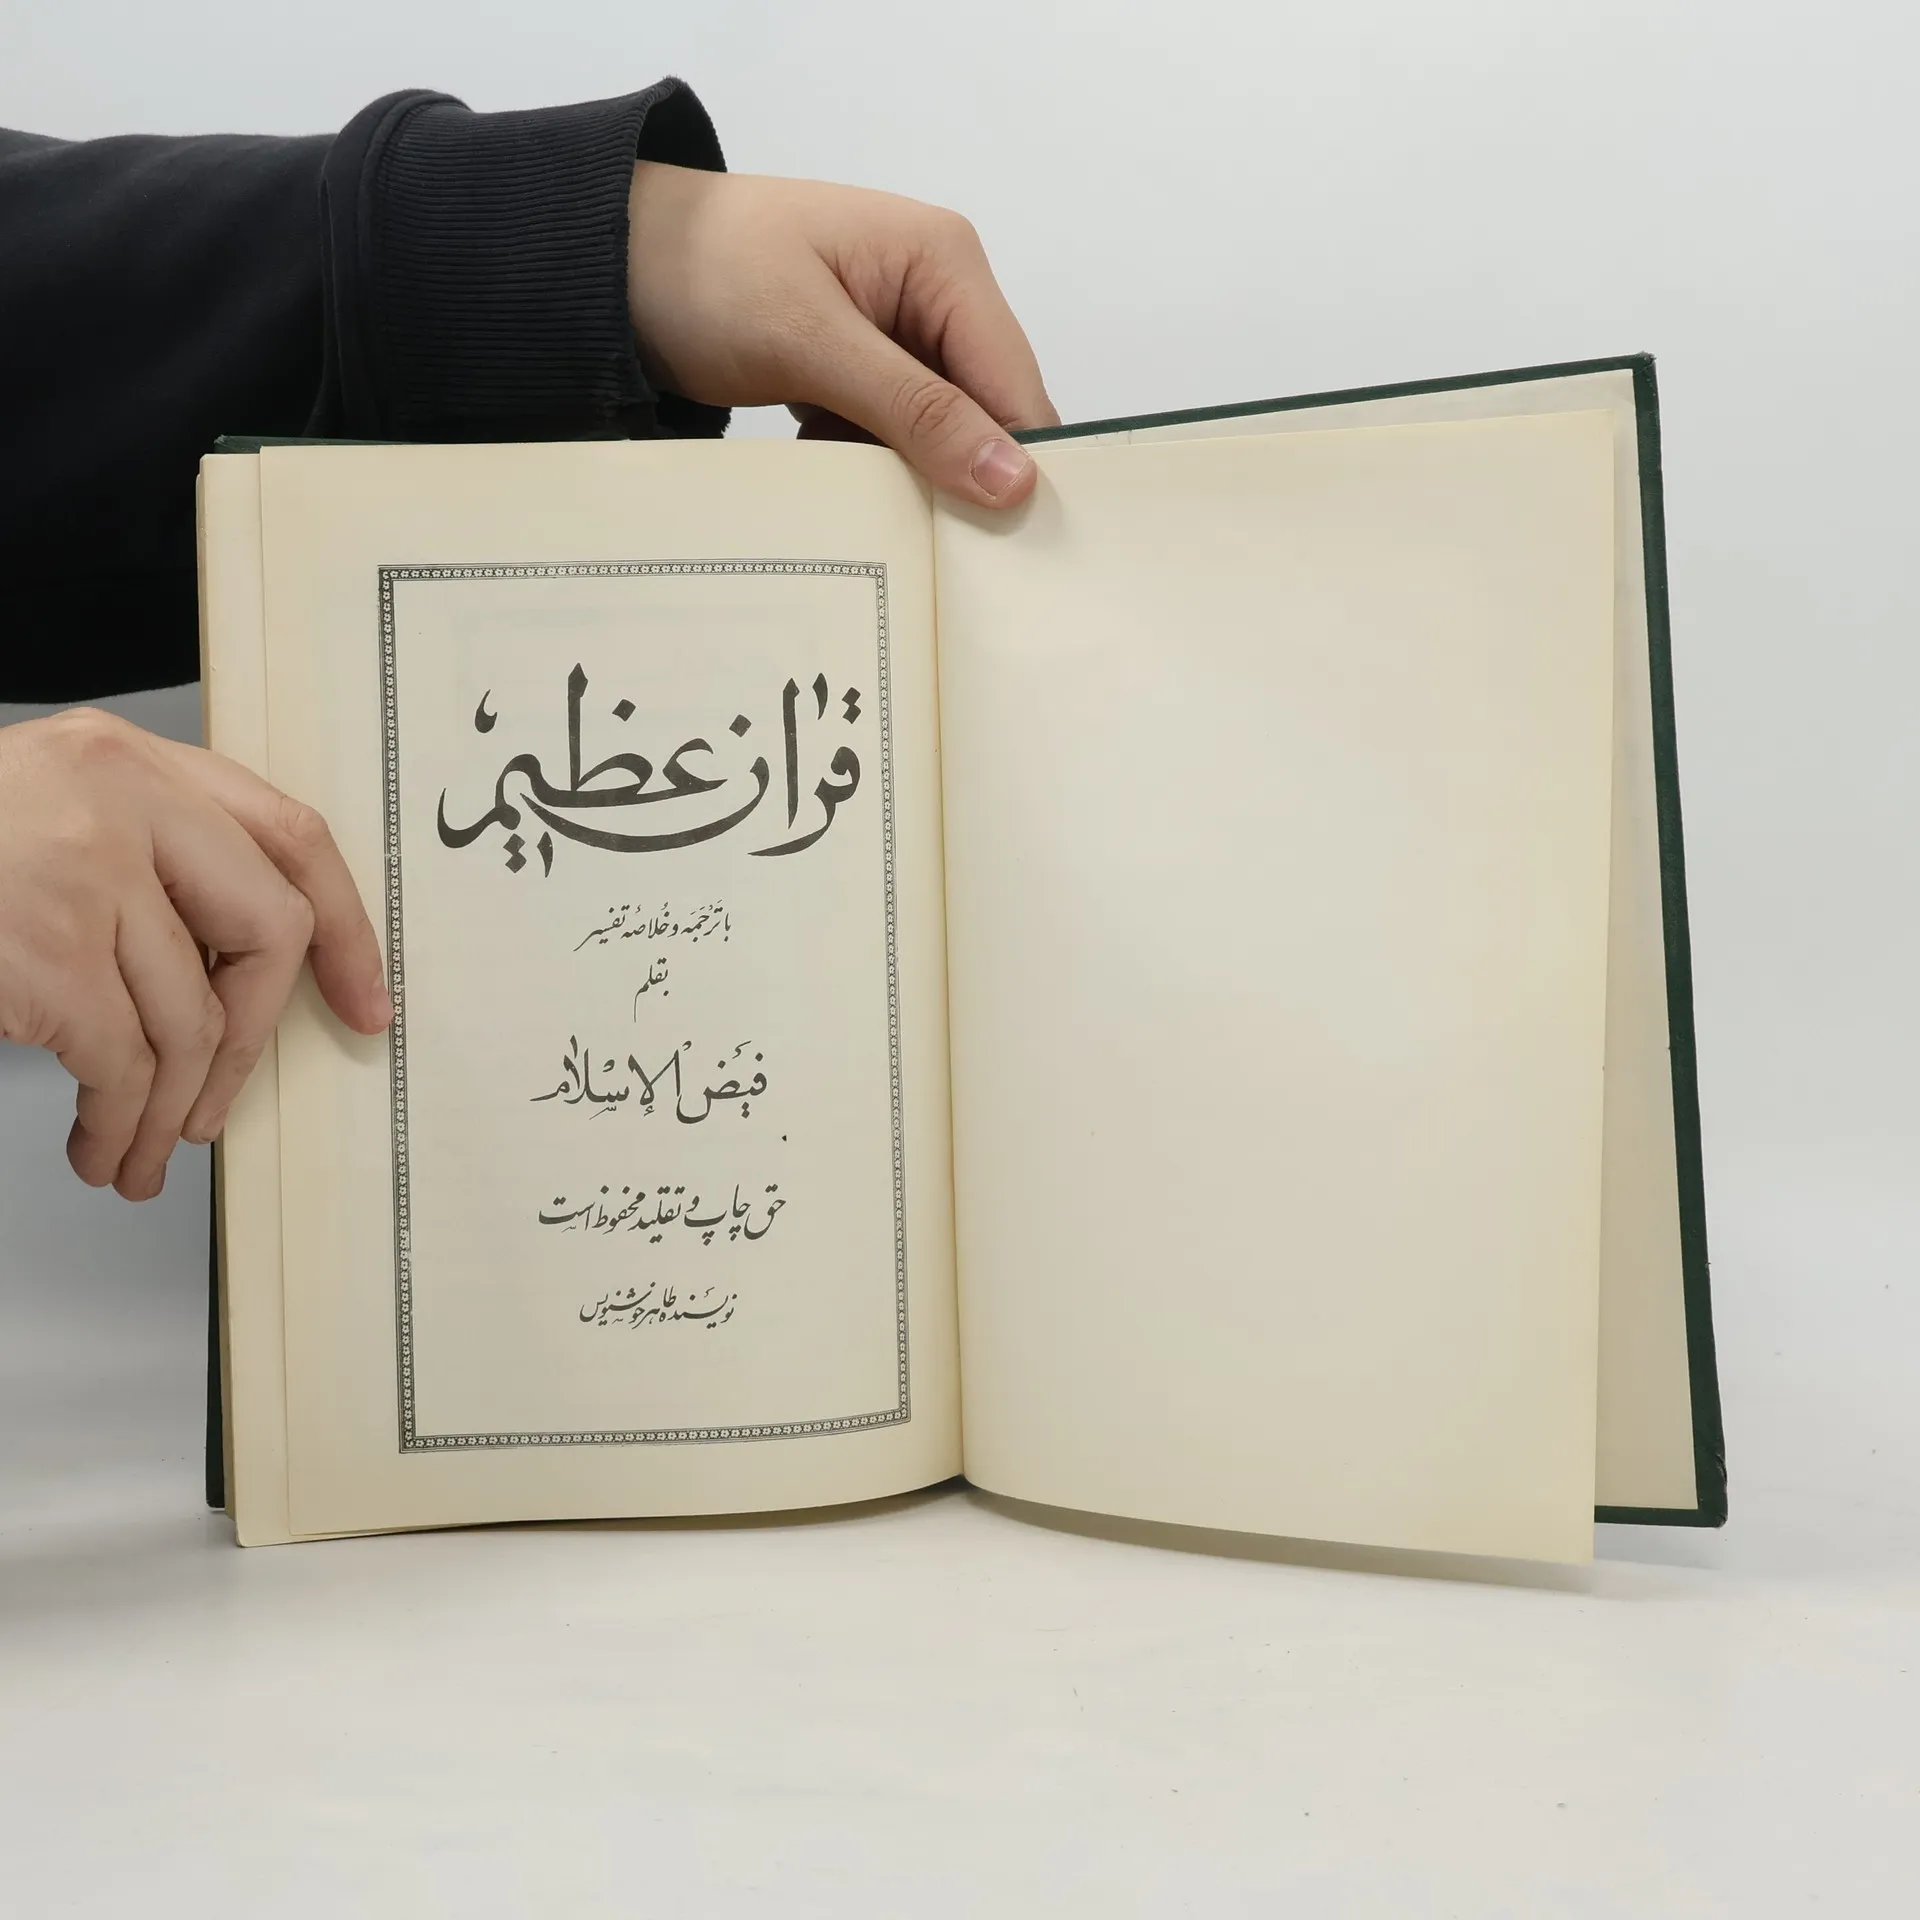 قرآن عظیم
با تَرْجَمَه و خُلاصهٔ تفسیر
بقلم
فَیْضُ الْإِسْلام
حق چاپ و تقلید محفوظ است
نویسنده طاهر خوشنویس